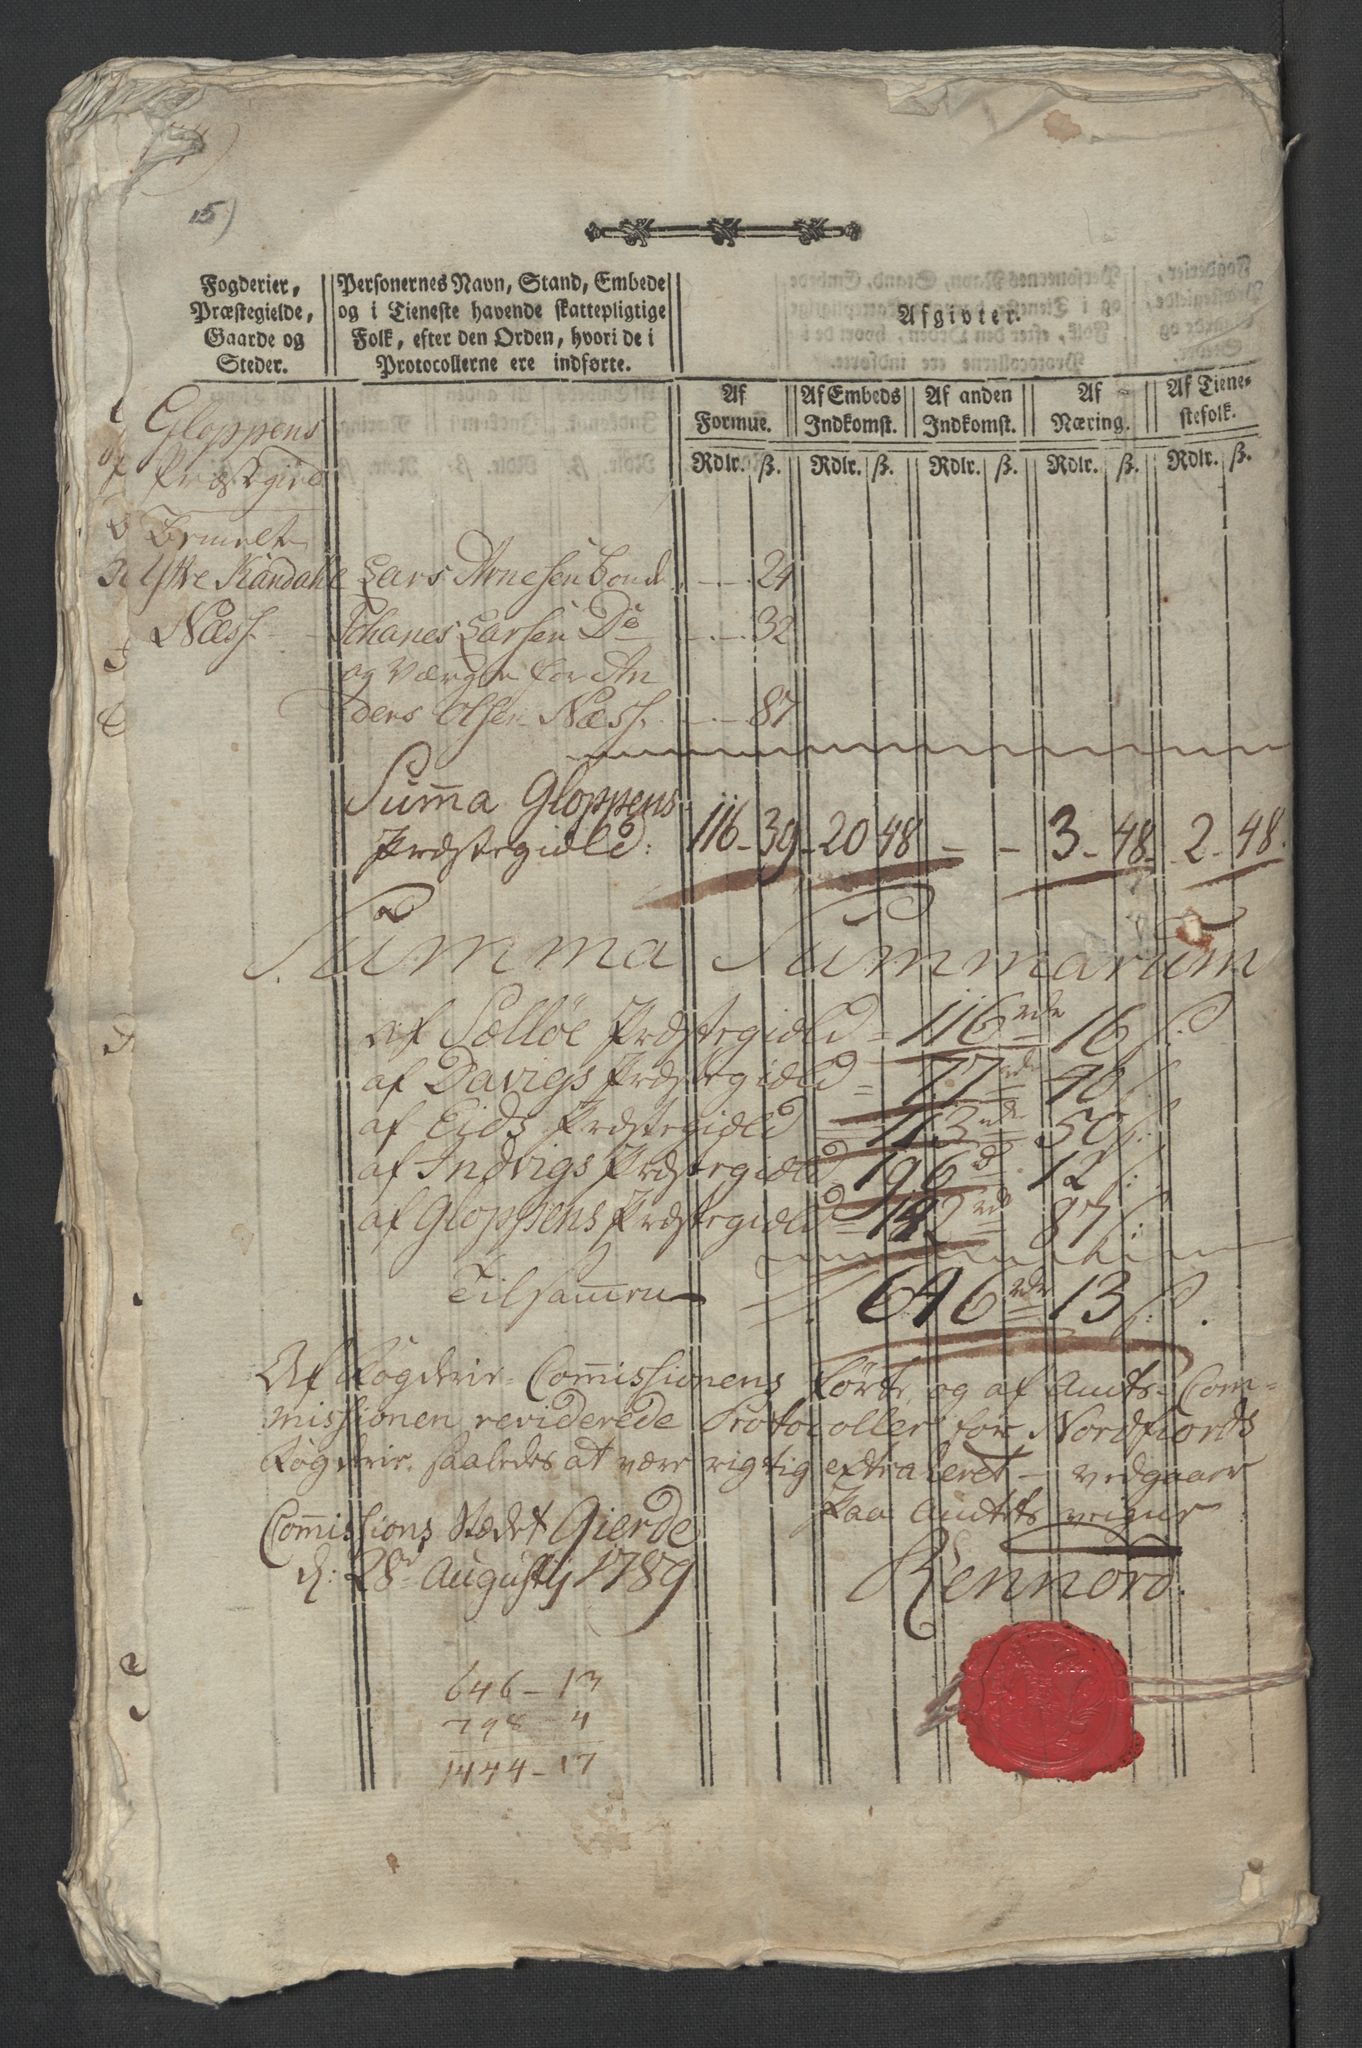 15)
Fogderier,
Præstegielde,
Gaarde og
Steder.
Personernes Navn, Stand, Embede
og i Tieneste havende skattepligtige
Folk, efter den Orden, hvori de i
Protocollerne ere indførte.
Afgivter.
Af
Formue.
Af Embeds
Indkomst.
Af anden
Indkomst.
Af
Næring.
Af Tiene-
stefolk.
Rdlr. ß. Rdlr. ß. Rdlr. ß. Rdlr. ß. Rdlr. ß.
Gloppens
Præstgield
Ytre Kandahl Lars Arnesen Bonde 24
Næss Johanes Larsen Do 32
og Værge for An
ders Olsen Næss 87
Summa Gloppens
Præstegield: 116 - 39 - 20 48 - - 3 - 48 - 2 - 48.
Summa Summarum
af Sælløe Præstegield = 116 rdr 16 ß.
af Davigs Præstegield = 77 rdr 40 ß.
af Eids Præstegield = 113 rdr 50 ß.
af Indvigs Præstegield 196 rd 12 ß.
af Gloppens Præstegield = 142 rd 87 ß.
Tilsammen 646 rdr 13 ß.
Af Fogderie-Commissionens førte, og af Amts-Com-
missionen reviderede Protocoller for Nordfiords
Fogderie, saaledes at være rigtig extraheret - vedgaaer
Paa Amtets veigne
Commissions Stædet Gierde
d: 28de Augusty 1789
Rennord.
646 - 13
798 - 4
1444 - 17